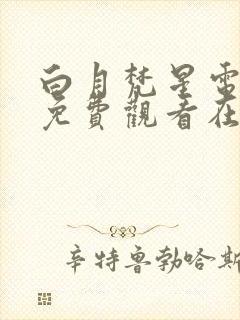 白月梵星電
免費觀看在
辛特魯勃哈斯